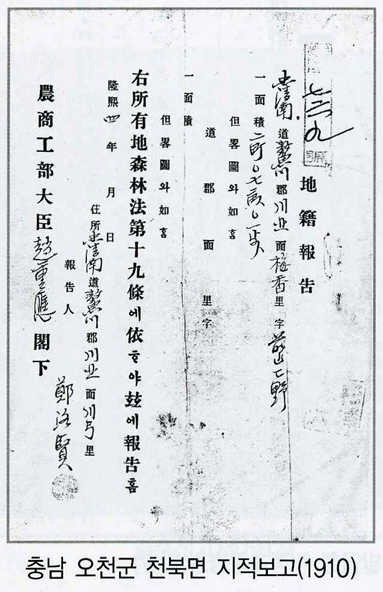 七三九
地籍報告
忠淸南道鰲川郡川北面梅香里字
一面積二町〇七畝〇一步
但畧圖와如흠
道郡面里字
一面積
但畧圖와如흠
右所有地森林法第十九條에依하야玆에報告홈
隆熙四年 月 日
住所忠淸南道鰲川郡川北面川弓里
報告人 鄭洛賢
農商工部大臣趙重應閣下
충남 오천군 천북면 지적보고(1910)